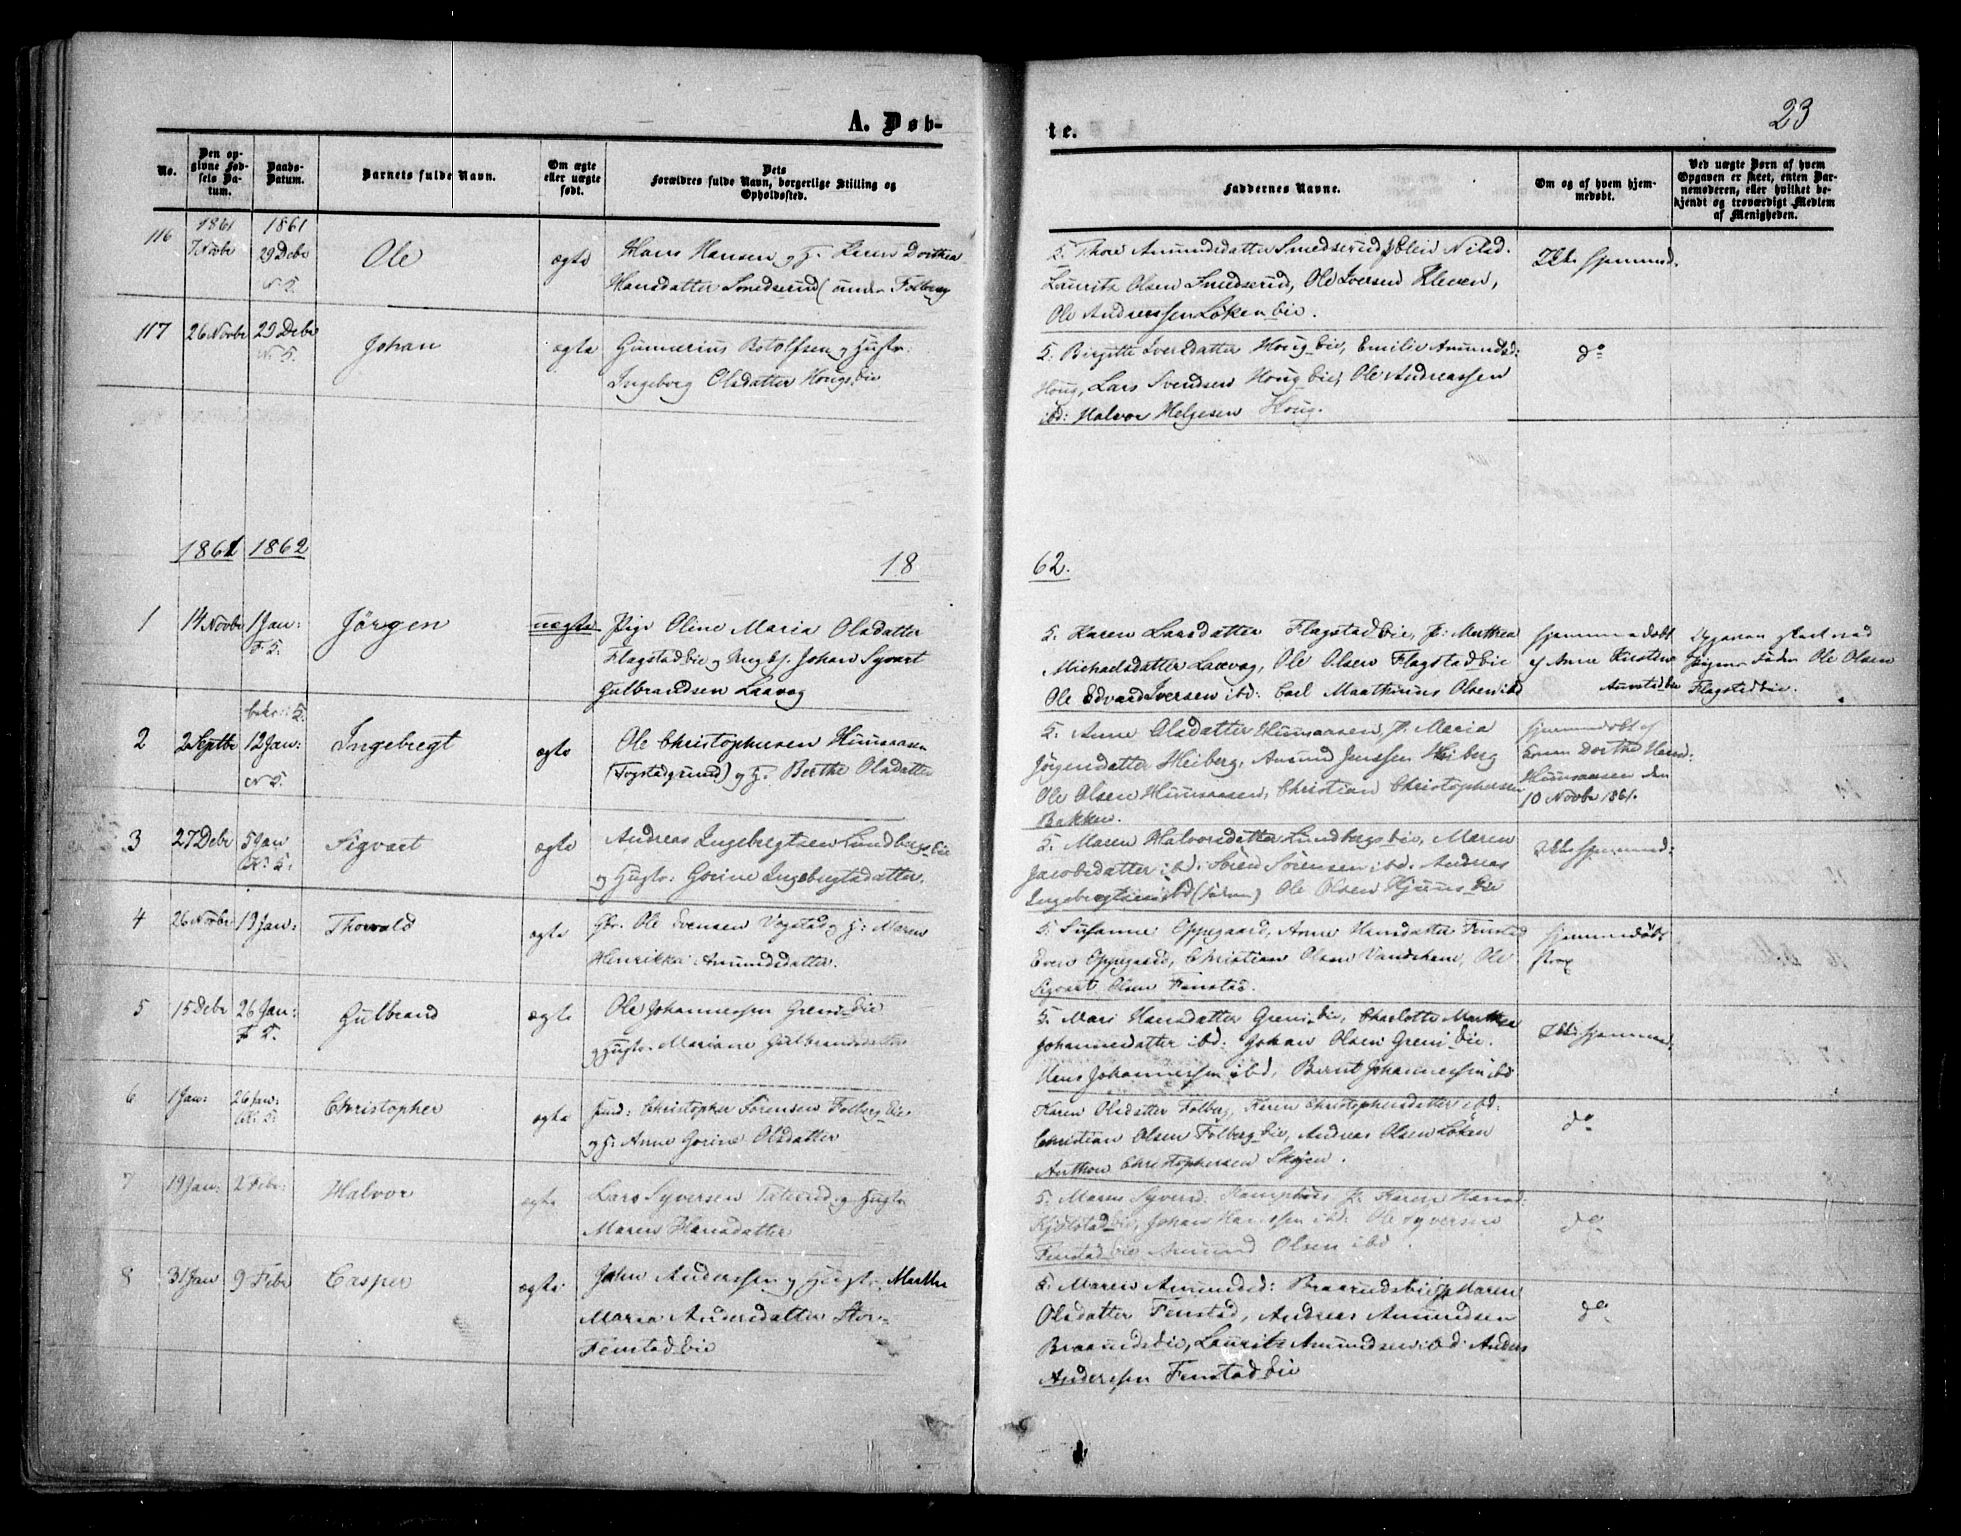 23
A. Døb-
te.
No.
Den op-
givne Fød-
sels Da-
tum.
Daabs-
Datum.
Barnets fulde Navn.
Om ægte
eller uægte
født.
Dets
Forældres fulde Navn, borgerlige Stilling og
Opholdssted.
Faddernes Navne.
Om og af hvem hjem-
medøbt.
Ved uægte Børn af hvem
Opgaven er skeet, enten Bar-
nemoderen, eller hvilket be-
kjendt og troværdigt Medlem
af Menigheden.
1861 1861
116 7 Novbr 29 Debr Ole ægte Hans Hansen og H. Karen Dorthea
N 5.
Hansdatter Smedserud (under Folberg
5. Thore Amundsdatter Smedserud,
Lauritz Olsen Smedserud, Ole Iversen Kleven,
Ole Andreassen Løkenbie.
Ikke hjemmed.
117 26 Novbr 29 Debr Johan ægte Gunnerius Botolfsen og Hustr.
N 5.
Ingeborg Olsdatter Hougsbie
5. Birgitte Iversdatter Hougbie, Emilie Amundsd:
Houg, Lars Svendsen Hougbie, Ole Andreassen
ibd: Halvor Helgesen Houg.
do
1861 1862
18
62.
1 14 Novbr 1 Jan: Jörgen uægte Pige Oline Maria Olsdatter
F 5.
Flagstadbie og Ungkj. Johan Syvart
Gulbrandsen Laavag
5. Karen Larsdatter Flagstadbie, P: Marthea
Michaelsdatter Laavag, Ole Olsen Flagstadbie
Ole Edvard Iversen ibd: Carl Maathinus Olsen ibd
hjemmedöbt
af Anne Kirstine
Opgaven skeet ved
Pigens Fader Ole Olsen
Flagstadbie.
2 2 Septbr 12 Jan: Ingebregt ægte Ole Christophersen Huusaasen
N 5.
(Fogstadgrund) og H. Berthe Olsdatter
5. Anne Olsdatter Huusaasen, P. Maria
Jörgensdatter Heiberg, Amund Jenssen Heiberg
Ole Olsen Huusaasen, Christian Christophersen
Bakken.
hjemmedöbt af
Huusaasen den
10 Novbr 1861.
3 27 Debr 5 Jan Sigvart ægte Andreas Ingebregtsen Lundbergsbie
og Hustr: Gorine Ingebregtsdatter.
5. Maren Halvorsdatter Lundbergsbie, Maren
Jacobsdatter ibd: Sören Sörensen ibd. Andreas
Ingebregtsen ibd (Faderen) Ole Olsen
Ikke hjemmed:
4 26 Novbr 19 Jan: Thorvald ægte Gbr. Ole Evensen Vogstad og H: Maren
Henrikka Amundsdatter.
5 Susanne Oppegaard, Anne Hansdatter Fenstad
Even Oppegaard, Christian Olsen Vandshem, Ole
Sigvart Olsen Fenstad.
hjemmedöbt
strax
5 15 Debr 26 Jan: Gulbrand ægte Ole Johannessen Grenibie
F 5.
og Hustr. Mariane Gulbrandsdatter
5. Mari Hansdatter Grenibie, Charlotte Marthea
Johannesdatter ibd: Johan Olsen Grenibie.
Hans Johannessen ibd, Bernt Johannessen ibd
Ikke hjemmed:
6 1 Jan: 26 Jan: Christopher ægte Christopher Sörensen Folbergbie
og H: Anne Gorine Olsdatter
Karen Olsdatter Folberg, Karen Christophersdatter ibd:
Christian Olsen Folbergbie, Andreas Olsen Löken
Anthon Christophersen Skøien.
do
7 19 Jan: 2 Febr: Halvor ægte Lars Syversen og Hustr
Maren Hansdatter
5. Maren Syversd: P: Karen Hansd:
Johan Hanssen ibd: Ole Syversen
Fenstadbie Amund Olsen ibd.
do
8 31 Jan 9 Febr Casper ægte John Anderssen og Hustr. Marthe
Maria Andersdatter Stor-
Fenstadbie
5. Maren Amundsd: Braarudsbie, P. Maren
Olsdatter Fenstad, Andreas Amundsen
Braarudsbie, Lauritz Amundsen ibd. Anders
Anderssen Fenstadbie
do